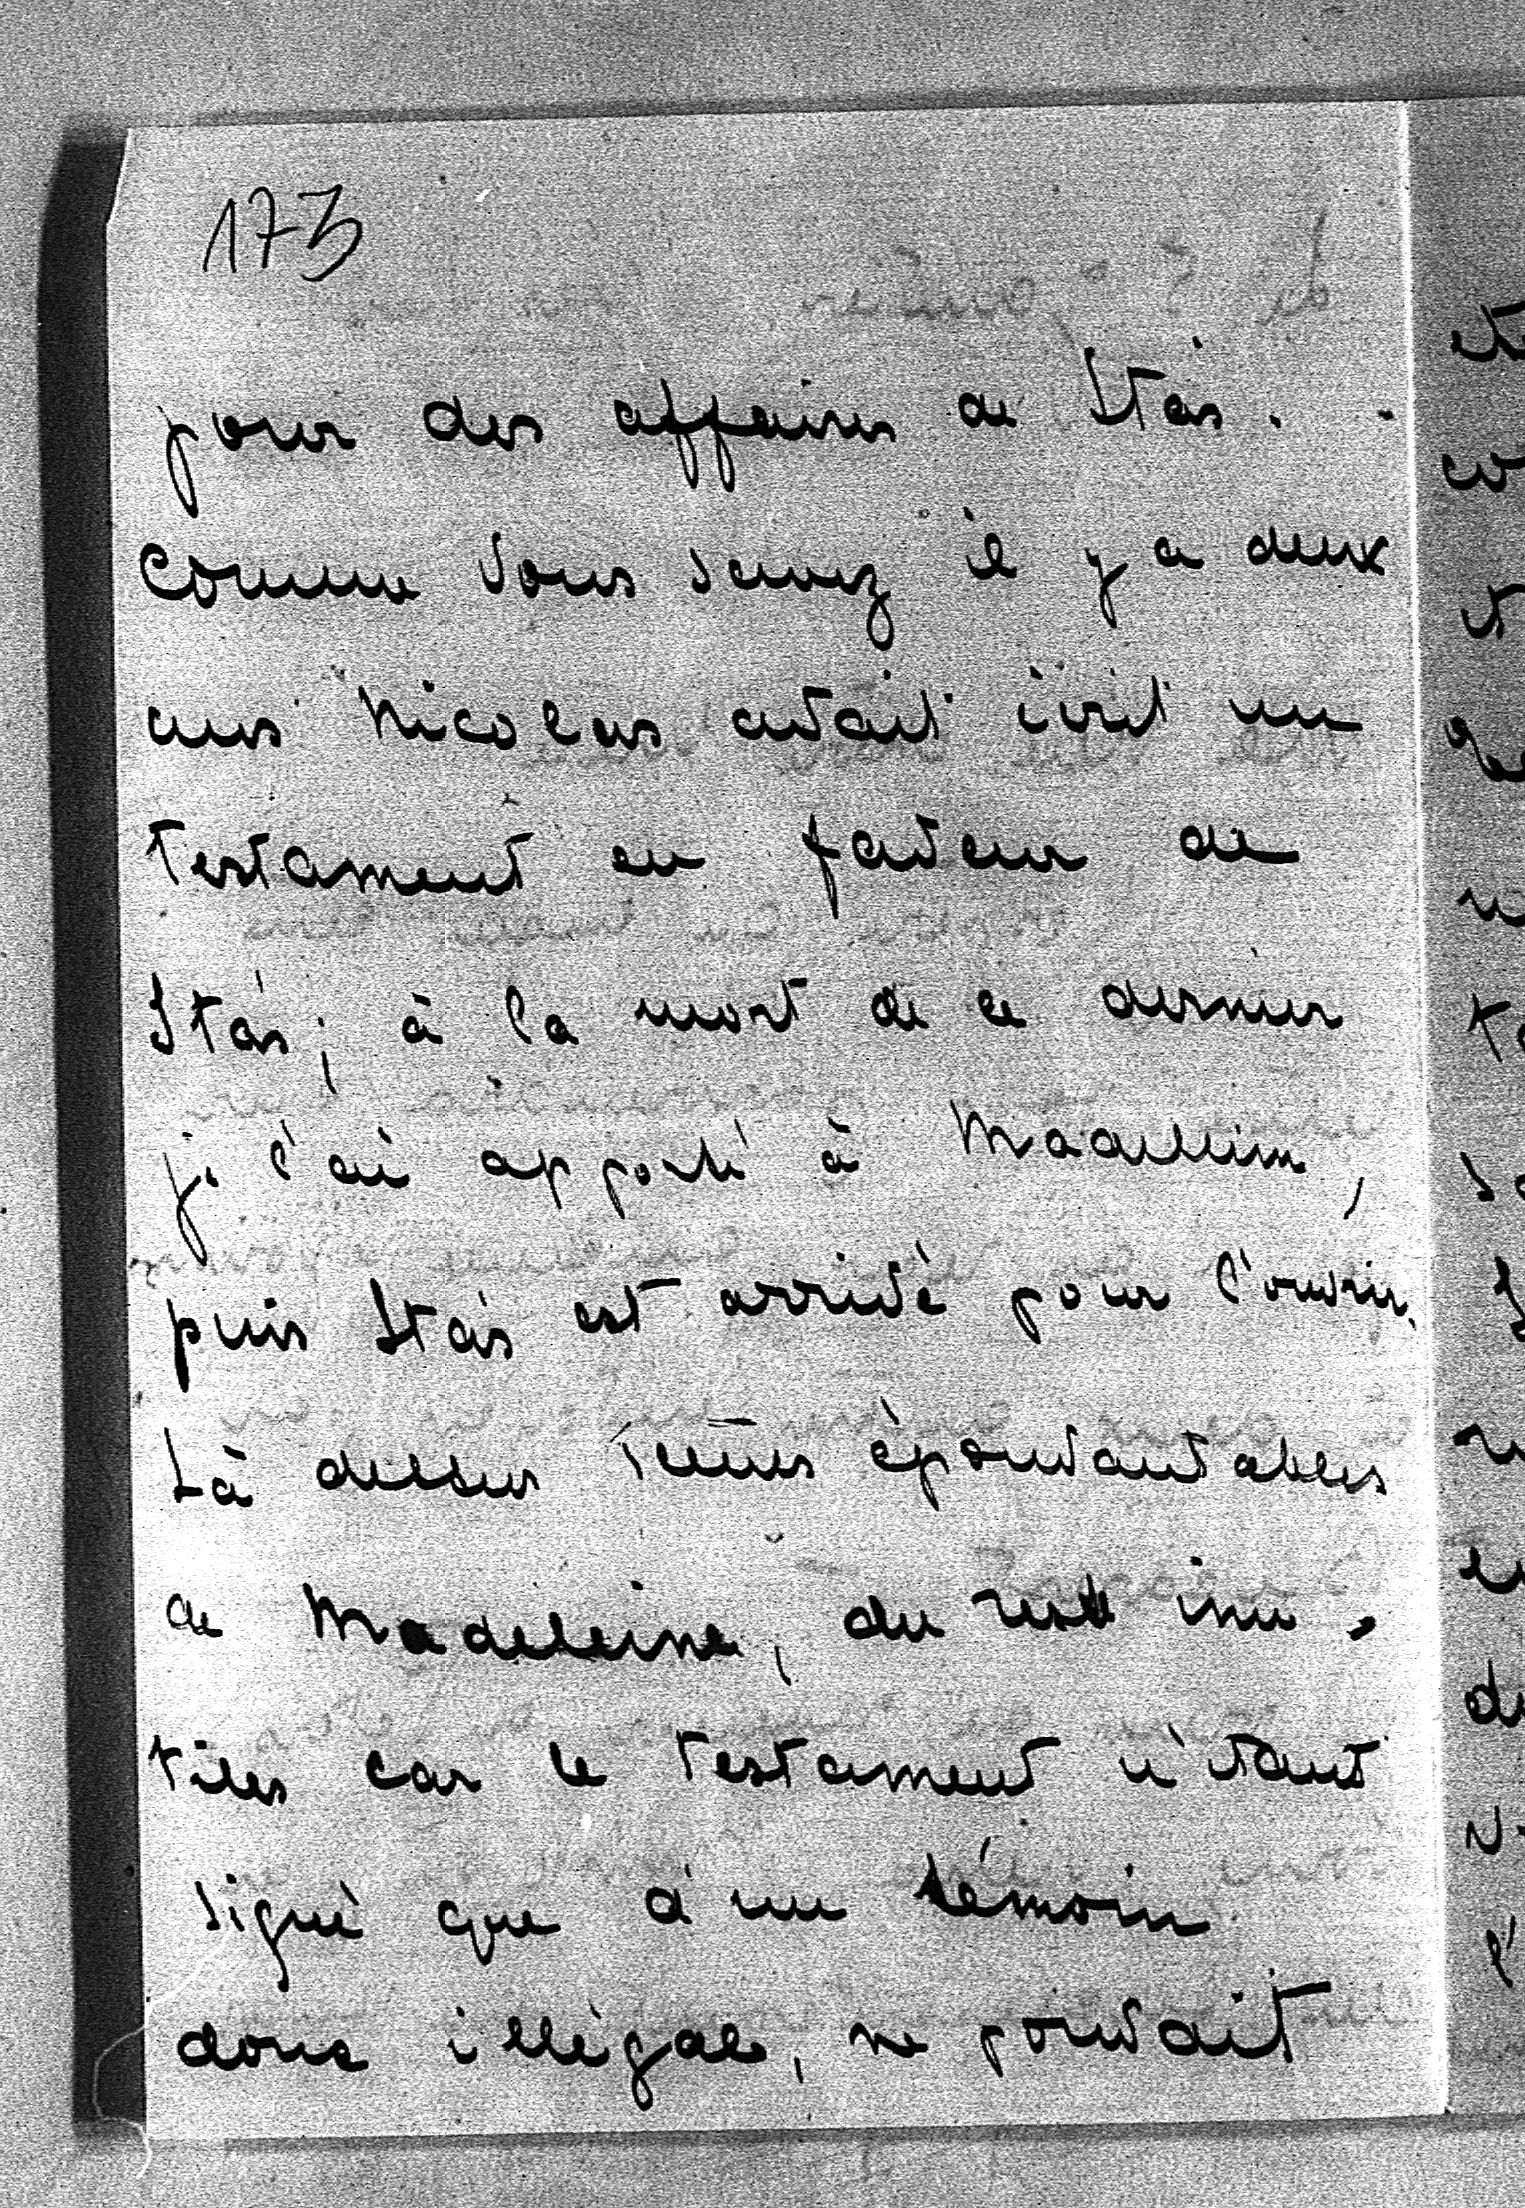 173
pour des affaires de Stas.
Comme vous savez il y a deux
ans Nicolas avait écrit un
testament en faveur de
Stas; à la mort de ce dernier
je l'ai apporté à Madeleine,
puis Stas est arrivé pour l'ouvrir.
Là dessus scènes épouvantables
de Madeleine, du reste inu-
tiles car le testament n'étant
signé que d'un témoin
donc illégale, ne pouvait